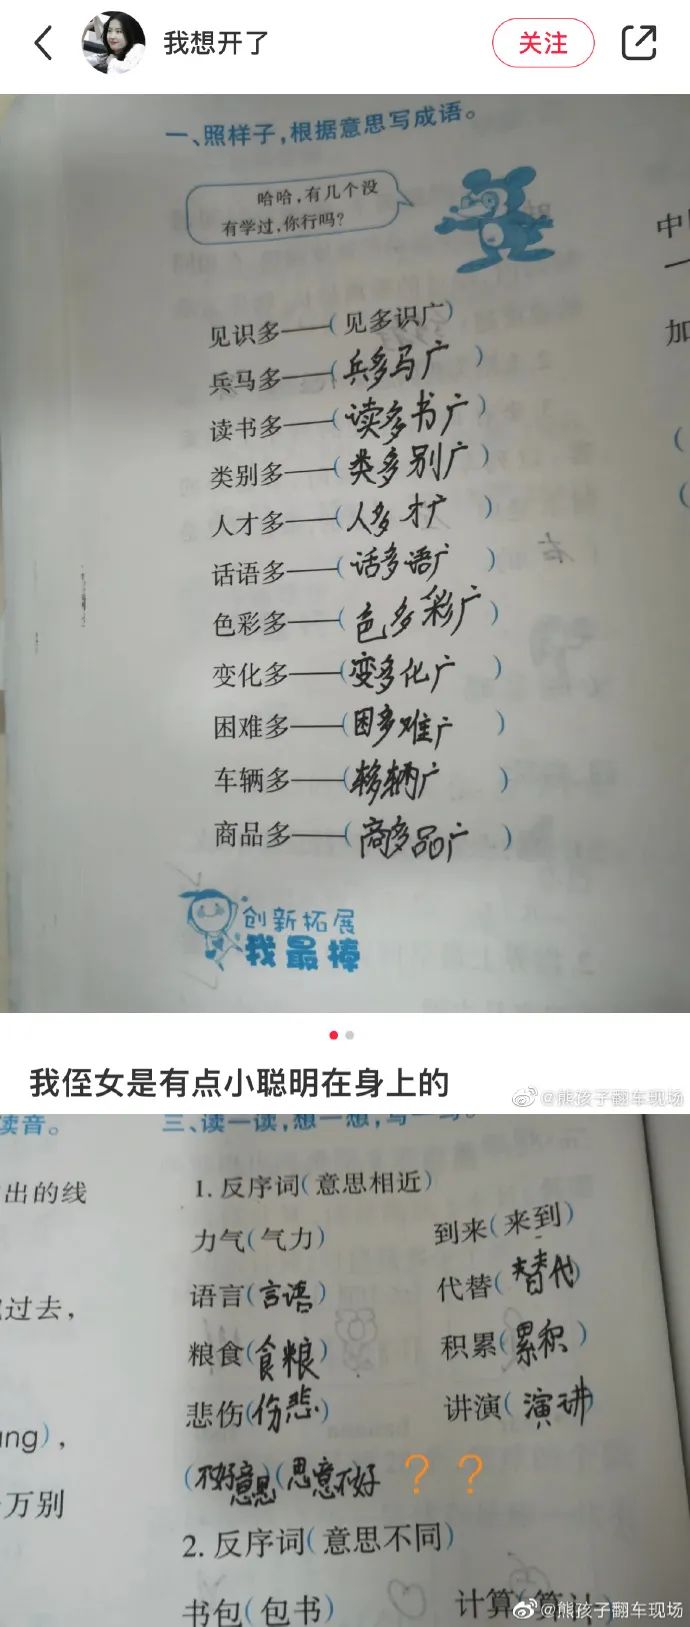 我想开了
关注
一、照样子，根据意思写成语。
哈哈，有几个没
有学过，你行吗？
中
加
见识多——（见多识广）
兵马多——（兵多马广）
读书多——（读多书广）
类别多——（类多别广）
人才多——（人多才广）
话语多——（话多语广）
色彩多——（色多彩广）
变化多——（变多化广）
困难多——（困多难广）
车辆多——（车多辆广）
商品多——（商多品广）
创新拓展
我最棒
我侄女是有点小聪明在身上的
@熊孩子翻车现场
读音。
三、读一读，想一想，写一写。
出的线
1. 反序词（意思相近）
力气（气力） 到来（来到）
语言（言语） 代替（替代）
过去，
粮食（食粮） 积累（累积）
悲伤（伤悲） 讲演（演讲）
ang），
（不好意思）（思意不好 ？？
万别
2. 反序词（意思不同）
书包（包书） 计算（算计）
@熊孩子翻车现场